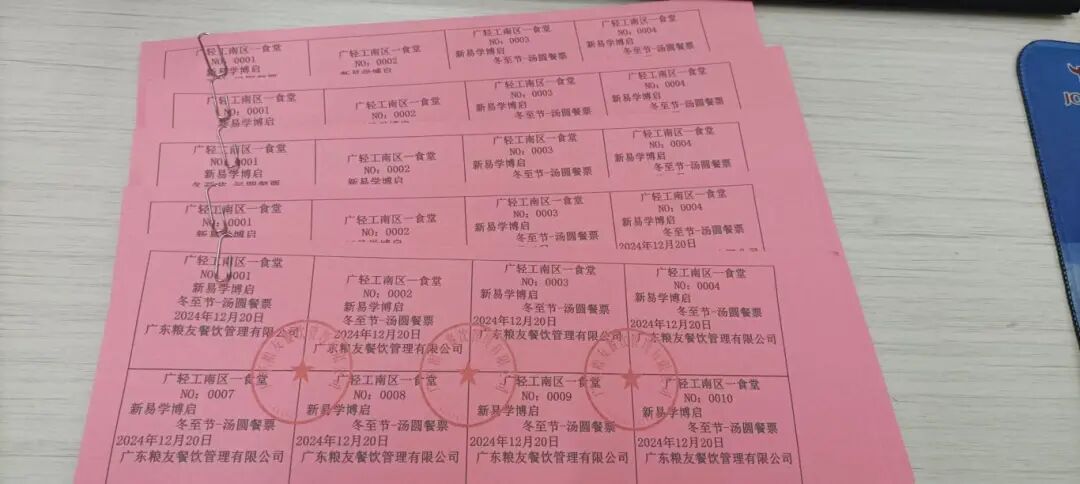 广轻工南区一食堂 广轻工南区一食堂 广轻工南区一食堂 广轻工南区一食堂
NO：0001 NO：0002 NO：0003 NO：0004
新易学博启 新易学博启 新易学博启
冬至节-汤圆餐票 冬至节-汤圆餐票
广轻工南区一食堂 广轻工南区一食堂 广轻工南区一食堂 广轻工南区一食堂
NO：0001 NO：0002 NO：0003 NO：0004
新易学博启 新易学博启 新易学博启
冬至节-汤圆餐票 冬至节-汤圆餐票
广轻工南区一食堂 广轻工南区一食堂 广轻工南区一食堂 广轻工南区一食堂
NO：0001 NO：0002 NO：0003 NO：0004
新易学博启 新易学博启 新易学博启 新易学博启
冬至节-汤圆餐票 冬至节-汤圆餐票 冬至节-汤圆餐票
广轻工南区一食堂 广轻工南区一食堂 广轻工南区一食堂 广轻工南区一食堂
NO：0001 NO：0002 NO：0003 NO：0004
新易学博启 新易学博启 新易学博启
冬至节-汤圆餐票 冬至节-汤圆餐票
2024年12月20日
广轻工南区一食堂 广轻工南区一食堂 广轻工南区一食堂 广轻工南区一食堂
NO：0001 NO：0002 NO：0003 NO：0004
新易学博启 新易学博启 新易学博启 新易学博启
冬至节-汤圆餐票 冬至节-汤圆餐票 冬至节-汤圆餐票 冬至节-汤圆餐票
2024年12月20日 2024年12月20日 2024年12月20日 2024年12月20日
广东粮友餐饮管理有限公司 广东粮友餐饮管理有限公司 广东粮友餐饮管理有限公司 广东粮友餐饮管理有限公司
广轻工南区一食堂 广轻工南区一食堂 广轻工南区一食堂 广轻工南区一食堂
NO：0007 NO：0008 NO：0009 NO：0010
新易学博启 新易学博启 新易学博启 新易学博启
冬至节-汤圆餐票 冬至节-汤圆餐票 冬至节-汤圆餐票 冬至节-汤圆餐票
2024年12月20日 2024年12月20日 2024年12月20日 2024年12月20日
广东粮友餐饮管理有限公司 广东粮友餐饮管理有限公司 广东粮友餐饮管理有限公司 广东粮友餐饮管理有限公司